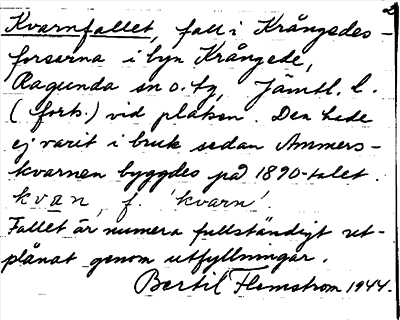 2
Kvarnfallet, fall i Krångedes-
forsarna i byn Krångede,
Ragunda sn o. tg, Jämtl. l.
(forts.) vid platsen. Den hade
ej varit i bruk sedan Ammers-
kvarnen byggdes på 1890-talet.
kvan, f. 'kvarn'.
Fallet är numera fullständigt ut-
plånat genom utfyllningar.
Bertil Flemström 1944.